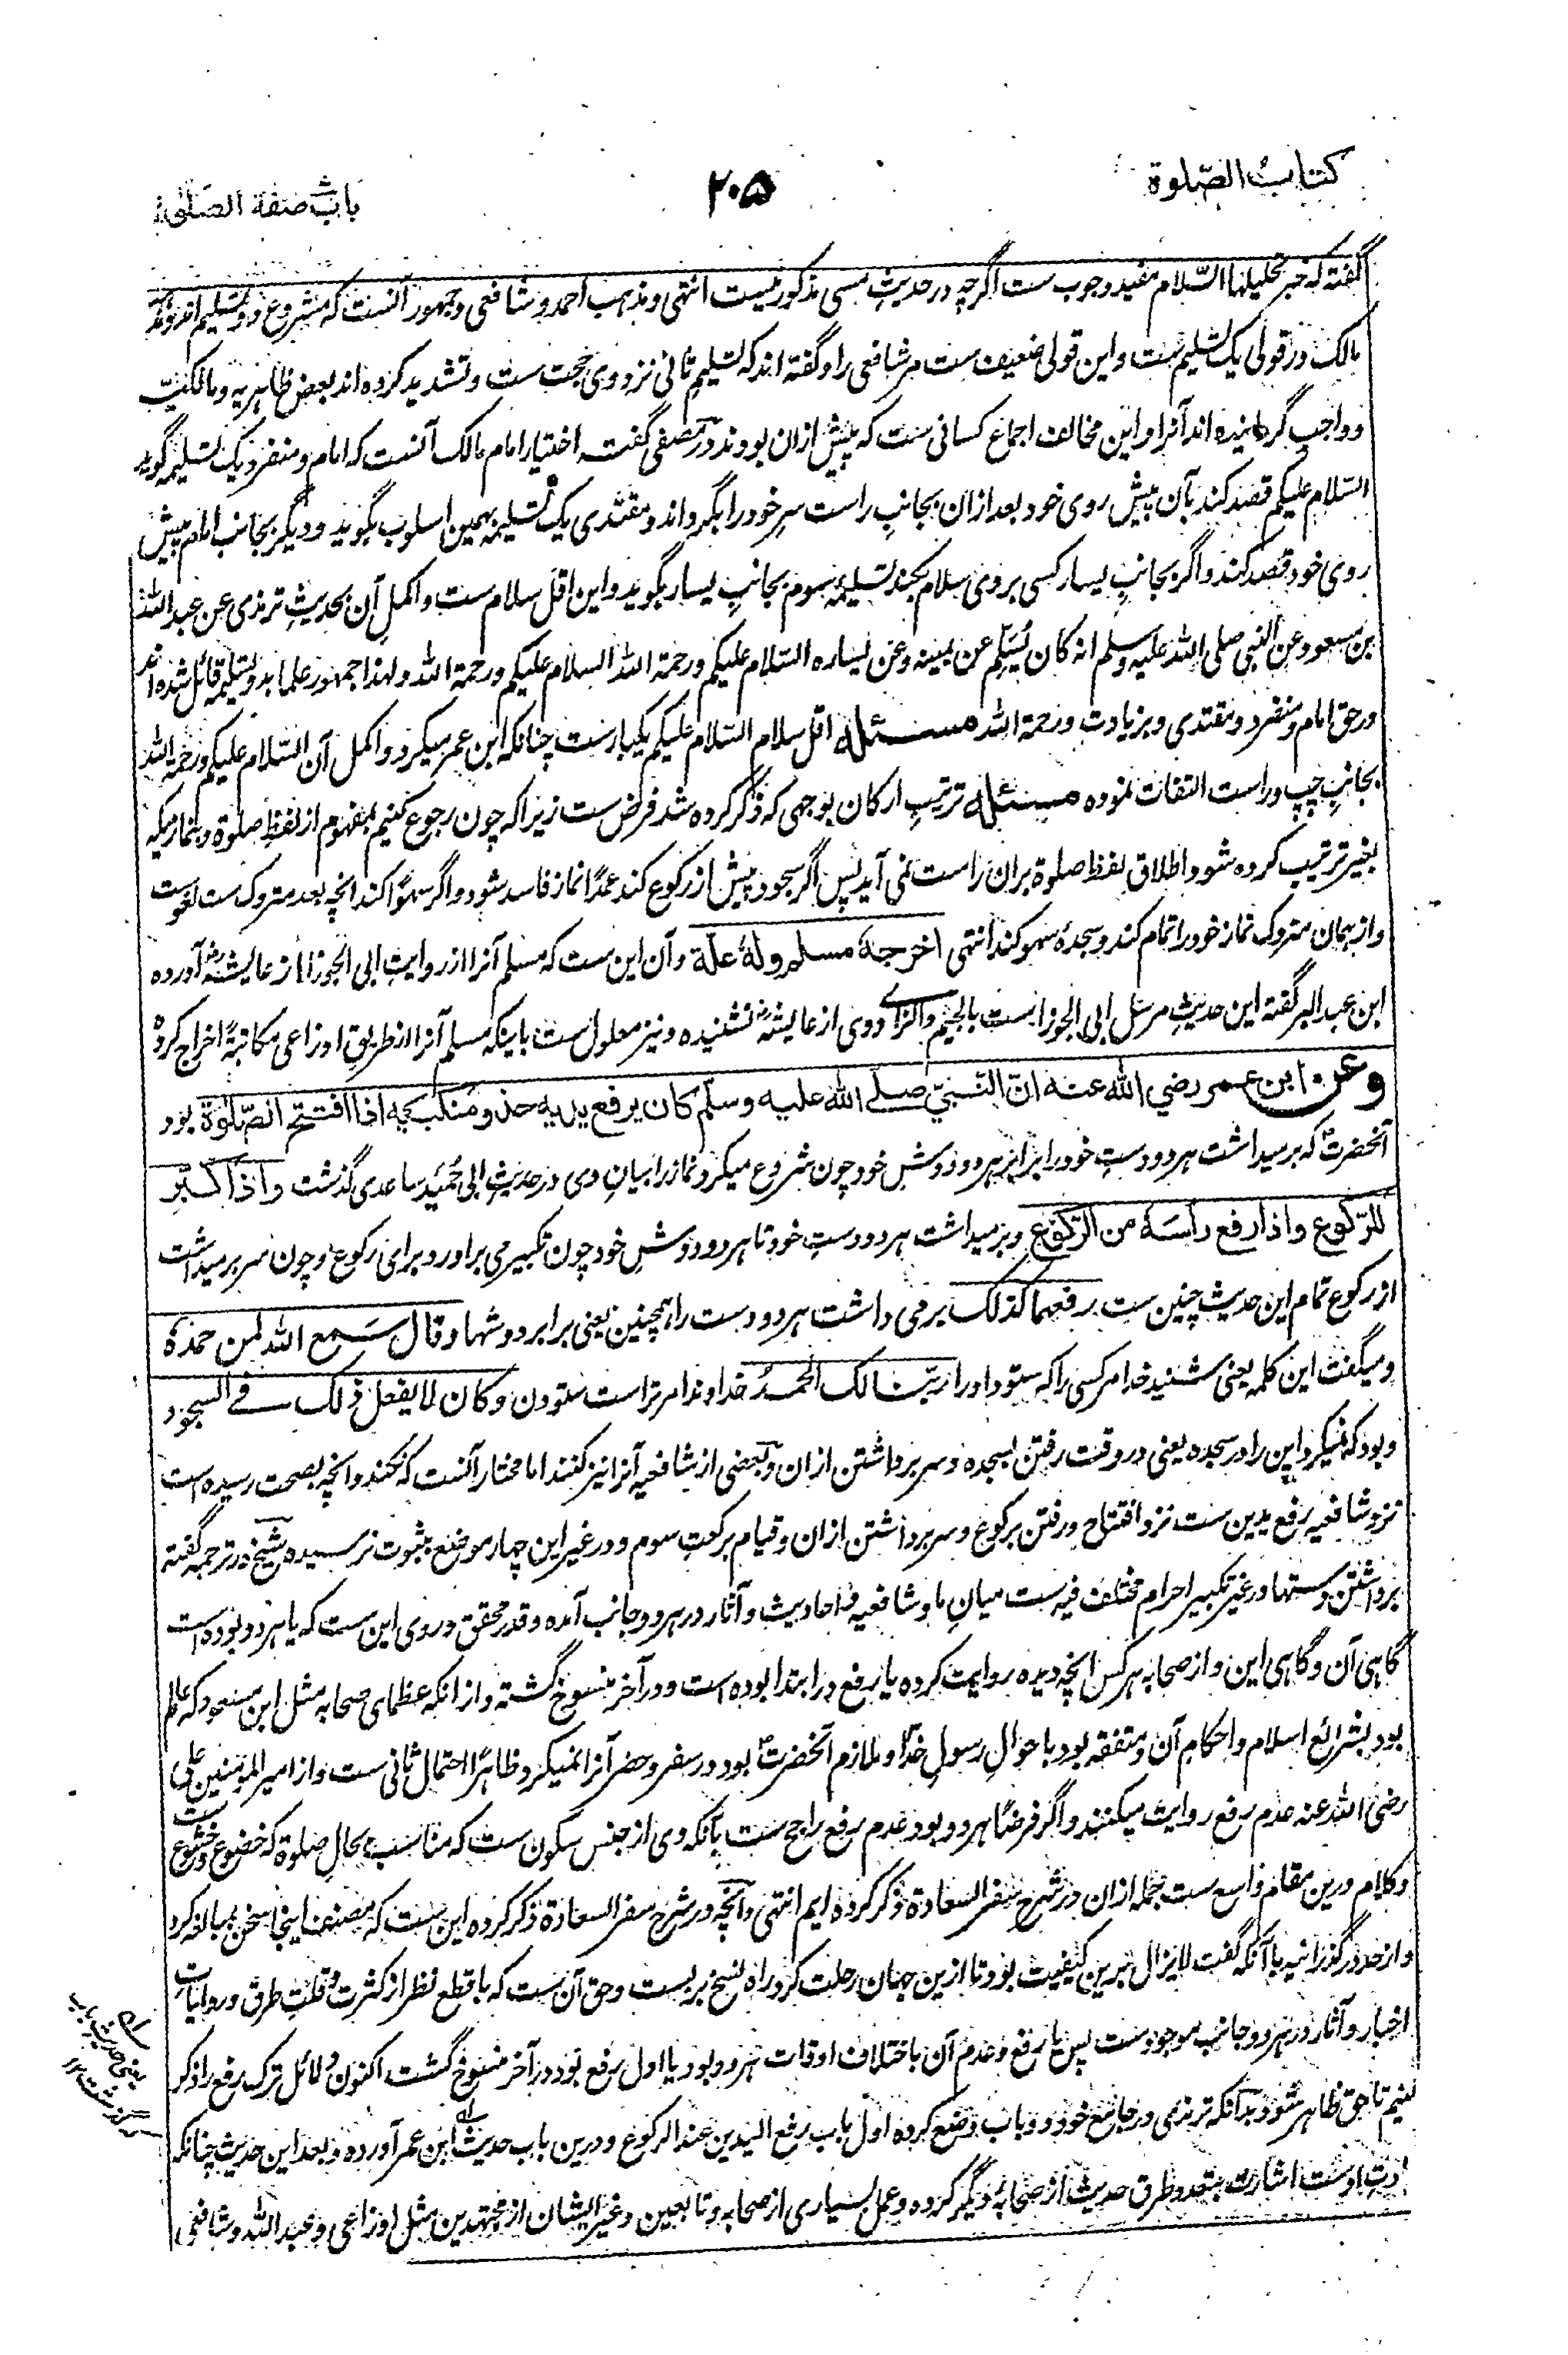 کتاب الصّلوة
۲۰۵
باب صفة الصلوة
گفته که خبر تحلیلها السّلام مفید وجوب ست اگرچه در حدیثِ مسی مذکور نیست انتهی و مذهب احمد و شافعی و جمهور آنست که مشروع دو تسلیم اند و نزد
مالک در قولی یک تسلیم ست و این قولی ضعیف ست مر شافعی را و گفته اند که تسلیم ثانی نزد وی حجت ست و تشدید کرده اند بعض ظاهریه و مالکیه
و واجب گردانیده اند آنرا و این مخالف اجماع کسانی ست که پیش ازان بودند در مصفی گفته اختیار امام مالک آنست که امام و منفرد یک تسلیمه گوید
السّلام علیکم قصد کند بآن پیش روی خود بعد ازان بجانبِ راست سرِ خود را بگرداند و مقتدی یک تسلیمه بهمین اسلوب بگوید و دیگر بجانب امام پیش
روی خود قصد کند و اگر بجانبِ یسار کسی بر وی سلام بکند تسلیمهٔ سوم بجانبِ یسار بگوید و این اقل سلام ست و اکملِ آن بحدیثِ ترمذی عن عبد الله
بن مسعود عن النبی صلی الله علیه وسلم انه کان یُسَلِّم عن یمینه و عن یساره السّلام علیکم ورحمة الله السلام علیکم ورحمة الله ولهذا جمهور علما بدو تسلیمه قائل شده اند
در حق امام و منفرد و مقتدی و بزیادت ورحمة الله مسئله اقل سلام السّلام علیکم یکبار ست چنانکه ابن عمر میکرد و اکمل آن السّلام علیکم ورحمة الله
بجانبِ چپ و راست التفات نموده مسئله ترتیبِ ارکان بوجهی که ذکر کرده شد فرض ست زیرا که چون رجوع کنیم بمفهوم از لفظِ صلوة و نمازیکه
بغیر ترتیب کرده شود اطلاقِ لفظ صلوة بران راست نمی آید پس اگر سجود پیش از رکوع کند عمدًا نماز فاسد شود و اگر سهوًا کند انچه بعد متروک ست لغوست
و از همان متروک نماز خود را تمام کند و سجدهٔ سهو کند انتهی اخرجهٔ مسلم ولهٔ علّة و آن این ست که مسلم آنرا از روایتِ ابی الجوزاء از عایشه آورده
ابن عبد البر گفته این حدیثِ مرسَل ابی الجوزا ست بالجیم والزای و وی از عایشه نشنیده و نیز معلول ست باینکه مسلم آنرا از طریقِ اوزاعی مکاتبةً اخراج کرده
وعن ابن عمر رضي الله عنه انّ النّبيّ صلے الله علیه وسلّم کان یرفع یدیه حذو منکبیه اذا افتتح الصّلوة بود
آنحضرت که برمیداشت هر دو دستِ خود را برابر هر دو دوشِ خود چون شروع میکرد نماز را بیانِ وی در حدیثِ ابی حُمَید ساعدی گذشت واذا کبّر
للرّکوع واذا رفع رأسَهٔ من الرّکوع و برمیداشت هر دو دستِ خود تا هر دو دوشِ خود چون تکبیر می برآورد برای رکوع و چون سر برمیداشت
از رکوع تمام این حدیث چنین ست رفعهما کذلک برمی داشت هر دو دست را همچنین یعنی برابر دوشها وقال سَمع الله لمن حمدهٗ
و میگفت این کلمه یعنی شنید خدا مر کسی را که ستود او را ربّنا لک الحمدُ خداوندا مر تراست ستودن وکان لا یفعل ذلک فی السجود
و بود که نمیکرد این را در سجده یعنی در وقت رفتن بسجده و سر برداشتن ازان و بعضی از شافعیه آنرا نیز کنند اما مختار آنست که نکنند و انچه بصحت رسیده است
نزد شافعیه رفع یدین ست نزد افتتاح و رفتن برکوع و سر برداشتن ازان و قیام برکعتِ سوم و در غیر این چهار موضع بثبوت نرسیده شیخ در ترجمه گفته
برداشتن دستها در غیر تکبیر احرام مختلف فیه ست میانِ ما و شافعیه و احادیث و آثار در هر دو جانب آمده و قدر محقق در وی این ست که یا هر دو بوده است
گاهی آن و گاهی این و از صحابه هر کس انچه دیده روایت کرده یا رفع در ابتدا بوده است و در آخر منسوخ گشته و از انکه عظمای صحابه مثل ابن مسعود که عالم
بود بشرائع اسلام و احکام آن و متفقه بود باحوالِ رسولِ خدا و ملازم آنحضرت بود در سفر و حضر آنرا نمیکرد ظاهرًا احتمال ثانی ست و از امیر المؤمنین علی
رضی الله عنه عدم رفع روایت میکنند و اگر فرضًا هر دو بود عدم رفع راجح ست بآنکه وی از جنس سکون ست که مناسب بحالِ صلوة که خضوع و خشوع ست
و کلام درین مقام واسع ست جمله ازان در شرح سفر السعادة ذکر کرده ایم انتهی و انچه در شرح سفر السعادة ذکر کرده این ست که مصنف اینجا سخن بمبالغه کرد
و از حد در گذرانید با آنکه گفت لا یزال برین کیفیت بود تا ازین جهان رحلت کرد و راه نسخ بربست و حق آن ست که با قطع نظر از کثرت و قلتِ طرق و روایات
اخبار و آثار در هر دو جانب موجود ست پس یا رفع و عدم آن باختلاف اوقات هر دو بود یا اول رفع بود در آخر منسوخ گشت اکنون دلائل ترک رفع را ذکر
کنیم تا حق ظاهر شود بدانکه ترمذی در جامع خود دو باب وضع کرده اول باب رفع الیدین عند الرکوع و درین باب حدیث ابن عمر آورده و بعد این حدیث چنانکه
عادتِ اوست اشارت بتعدد طرق حدیث از صحابهٔ دیگر کرده و عمل بسیاری از صحابه و تابعین و غیر ایشان از مجتهدین مثل اوزاعی و عبد الله و شافعی
یعنی حدیثِ باب
گذشت ۱۲